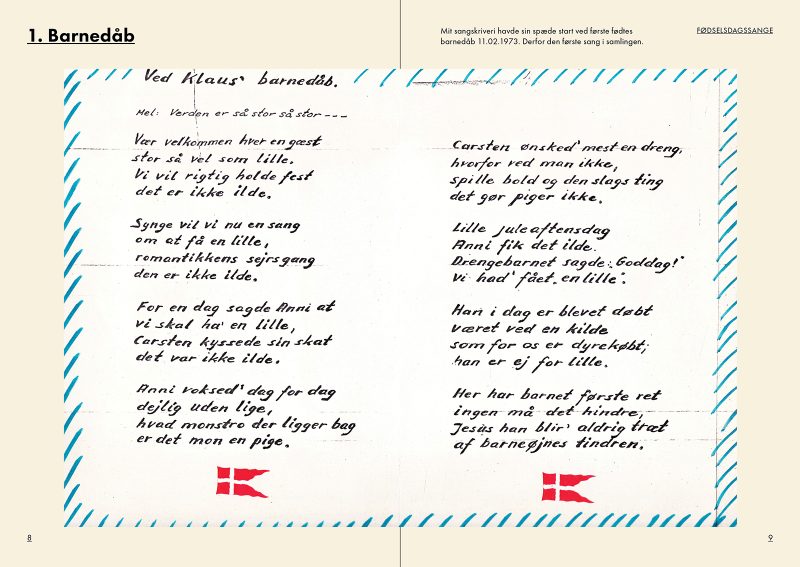 1. Barnedåb
Mit sangskriveri havde sin spæde start ved første fødtes
barnedåb 11.02.1973. Derfor den første sang i samlingen.
FØDSELSDAGSSANGE
Ved Klaus' barnedåb.
Mel: Verden er så stor så stor ---
Vær velkommen hver en gæst
stor så vel som lille.
Vi vil rigtig holde fest
det er ikke ilde.
Synge vil vi nu en sang
om at få en lille,
romantikkens sejrsgang
den er ikke ilde.
For en dag sagde Anni at
vi skal ha' en lille,
Carsten kyssede sin skat
det var ikke ilde.
Anni voksed' dag for dag
dejlig uden lige,
hvad monstro der ligger bag
er det mon en pige.
Carsten ønsked' mest en dreng,
hvorfor ved man ikke,
spille bold og den slags ting
det gør piger ikke.
Lille juleaftensdag
Anni fik det ilde.
Drengebarnet sagde: Goddag!"
Vi had' fået „en lille".
Han i dag er blevet døbt
været ved en kilde
som for os er dyrekøbt;
han er ej for lille.
Her har barnet første ret
ingen må det hindre,
Jesus han blir' aldrig træt
af barneøjnes tindren.
8
9